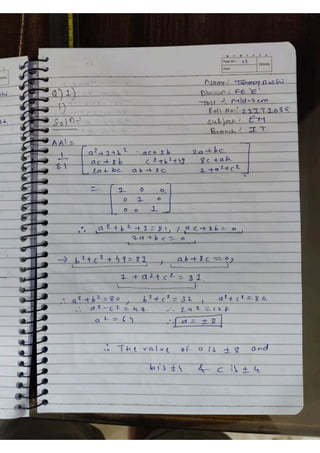 Page No. 13
Date
Name: Tanmay
Division: FE 'E'
Test: Mid-Sem
Roll No:
Subject: EM
Branch: IT
Q)1)
i)
Soln-
AA' =
1/81 [ a²+1+b² ac+8b 2a+bc
ac+8b c²+b²+49 8c+ab
2a+bc ab+8c 2+a²+c² ]
= [ 1 0 0
0 1 0
0 0 1 ]
∴ a²+b²+1=81, ac+8b=0,
2a+bc=0
→ b²+c²+49=81, ab+8c=0,
1+a²+c²=81
∴ a²+b²=80, b²+c²=32, a²+c²=80
∴ a²-c²=48 ∴ 2a²=128
a²=64 ∴ a=±8
∴ The value of a is ±8 and
b is ±4 & c is ±4.